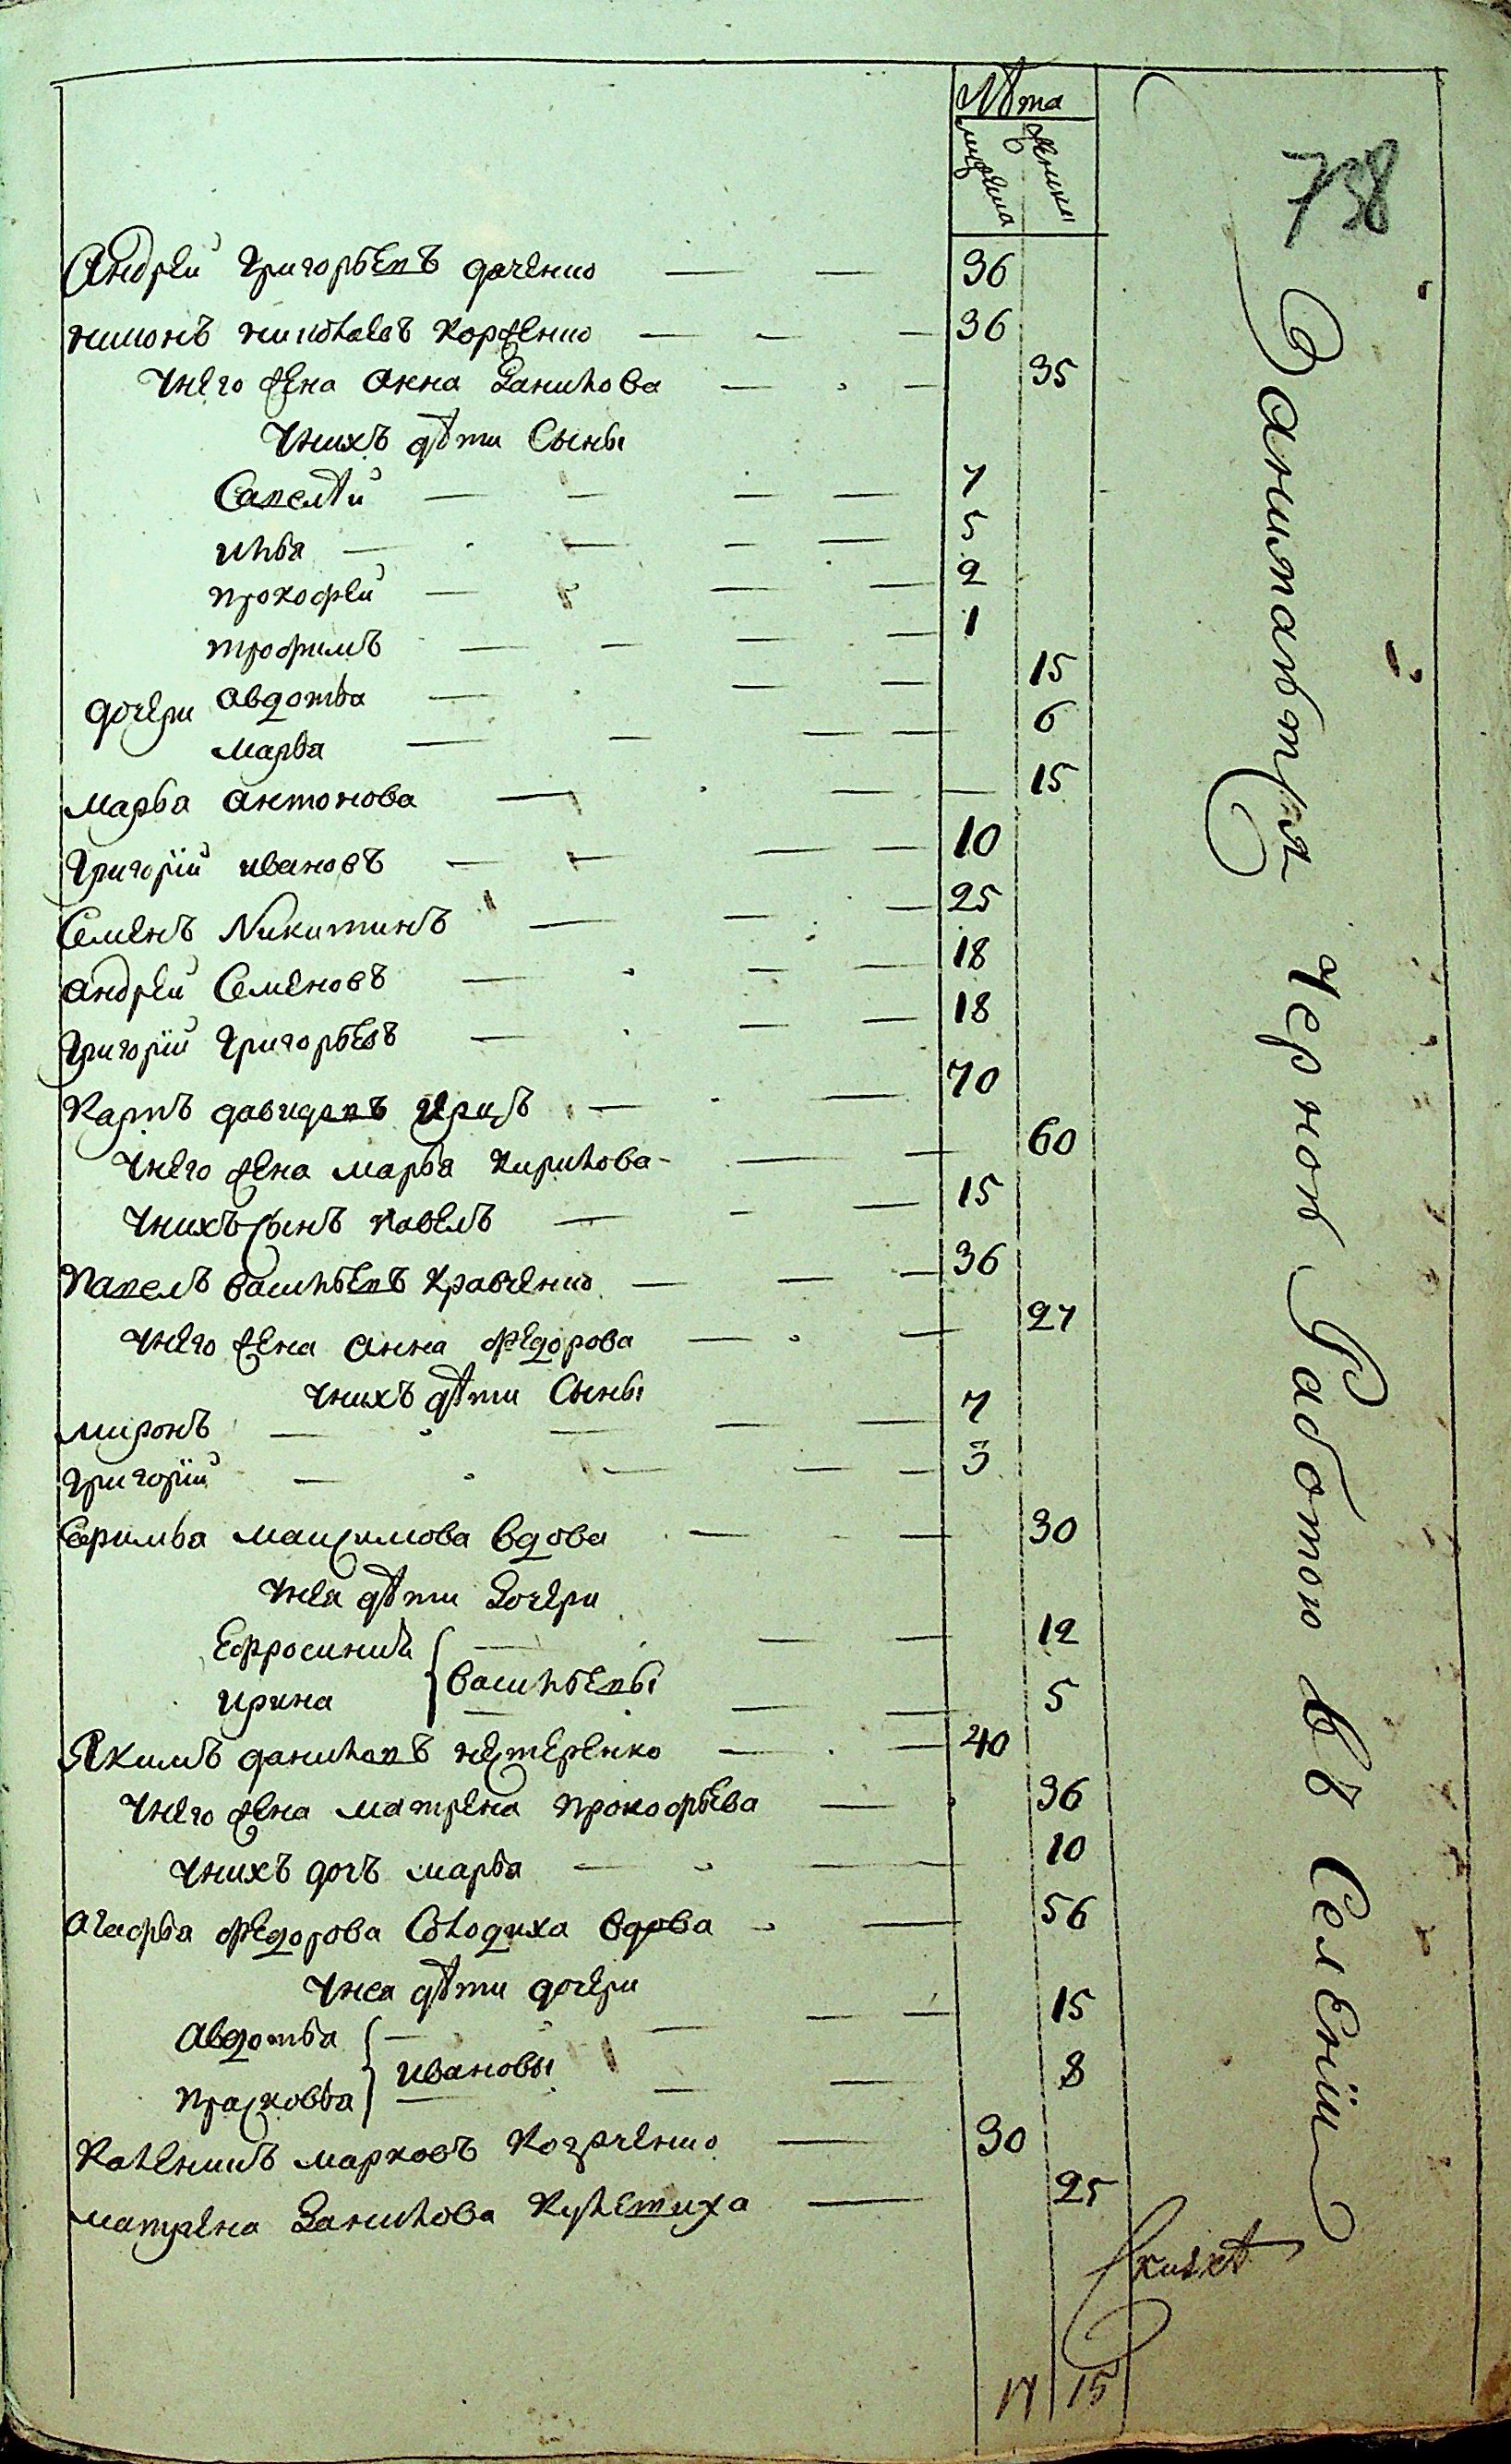 Лѣта
мужеска
женски
738
Андрей Григорьевъ даченко 36
никонъ николаевъ Корженко 36
Унего жена анна Данилова 35
Унихъ дѣти Сыны
Савелѣй 7
илья 5
прокофей 2
трофимъ 1
дочери авдотья 15
марья 6
марья антонова 15
Григорїй ивановъ 10
Семенъ Никитинъ 25
андрей Семеновъ 18
Григорїй Григорьевъ 18
Карпъ давидовъ 70
Унего жена марья Кирилова 60
Унихъ сынъ павелъ 15
Павелъ васильевъ Кравченко 36
Унего жена анна федорова 27
Унихъ дѣти Сыны
миронъ 7
Григорїй 3
Ефимья максимова вдова 30
Унея дѣти Дочери
Ефросинія 12
васильевы
ирина 5
Якимъ даниловъ нестеренко 40
Унего жена матрена прокофьева 36
Унихъ дочь марья 10
агафья федорова Солодиха вдова 56
Унея дѣти дочери
Авдотья 15
ивановы
прасковья 8
Каленикъ марковъ Козаченко 30
матрена Данилова Кулетиха 25
17 15
Занимаются черною Работою въ Селенїи